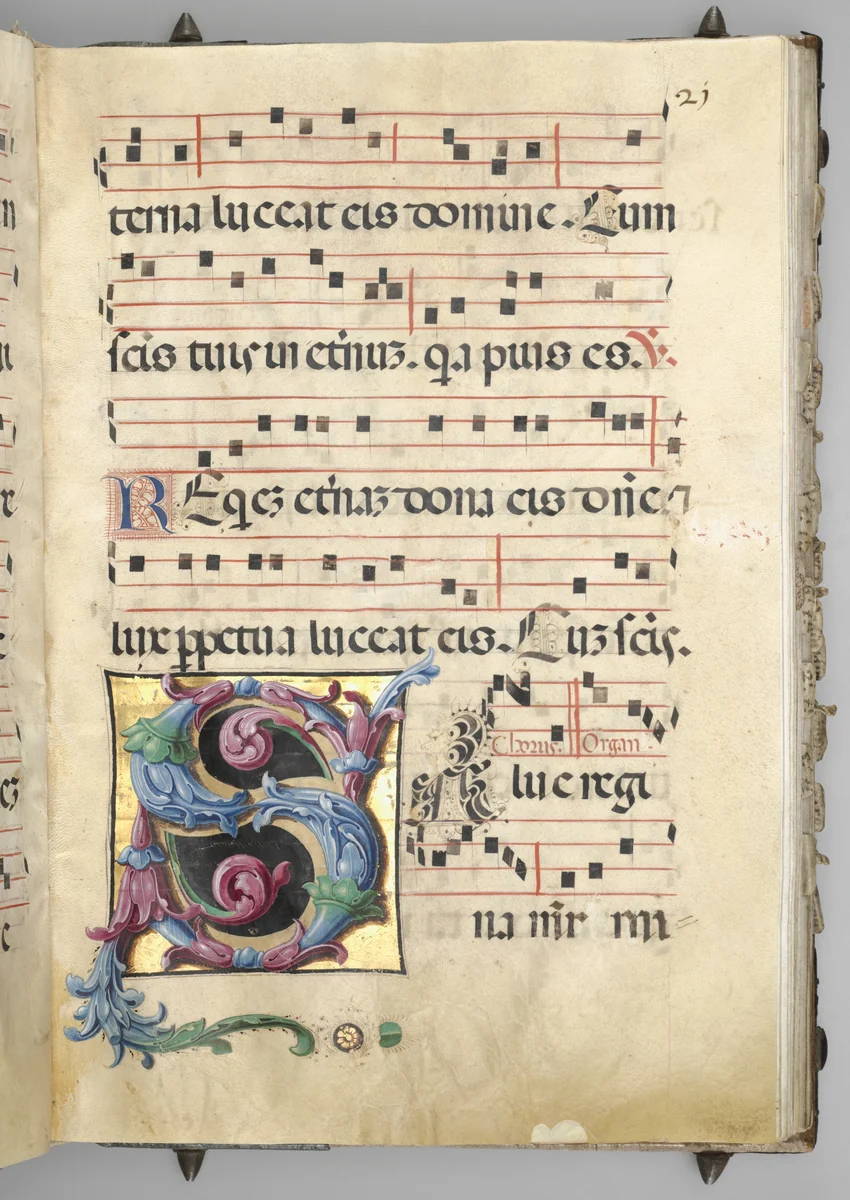 21
terna luceat eis domine. Cum
scis tuis in eternuz. qa pius es. V.
REqez eternaz dona eis dne et
lux ppetua luceat eis. Cuz scis.
Chorus. Organ.
SAlue regi
na mr mi